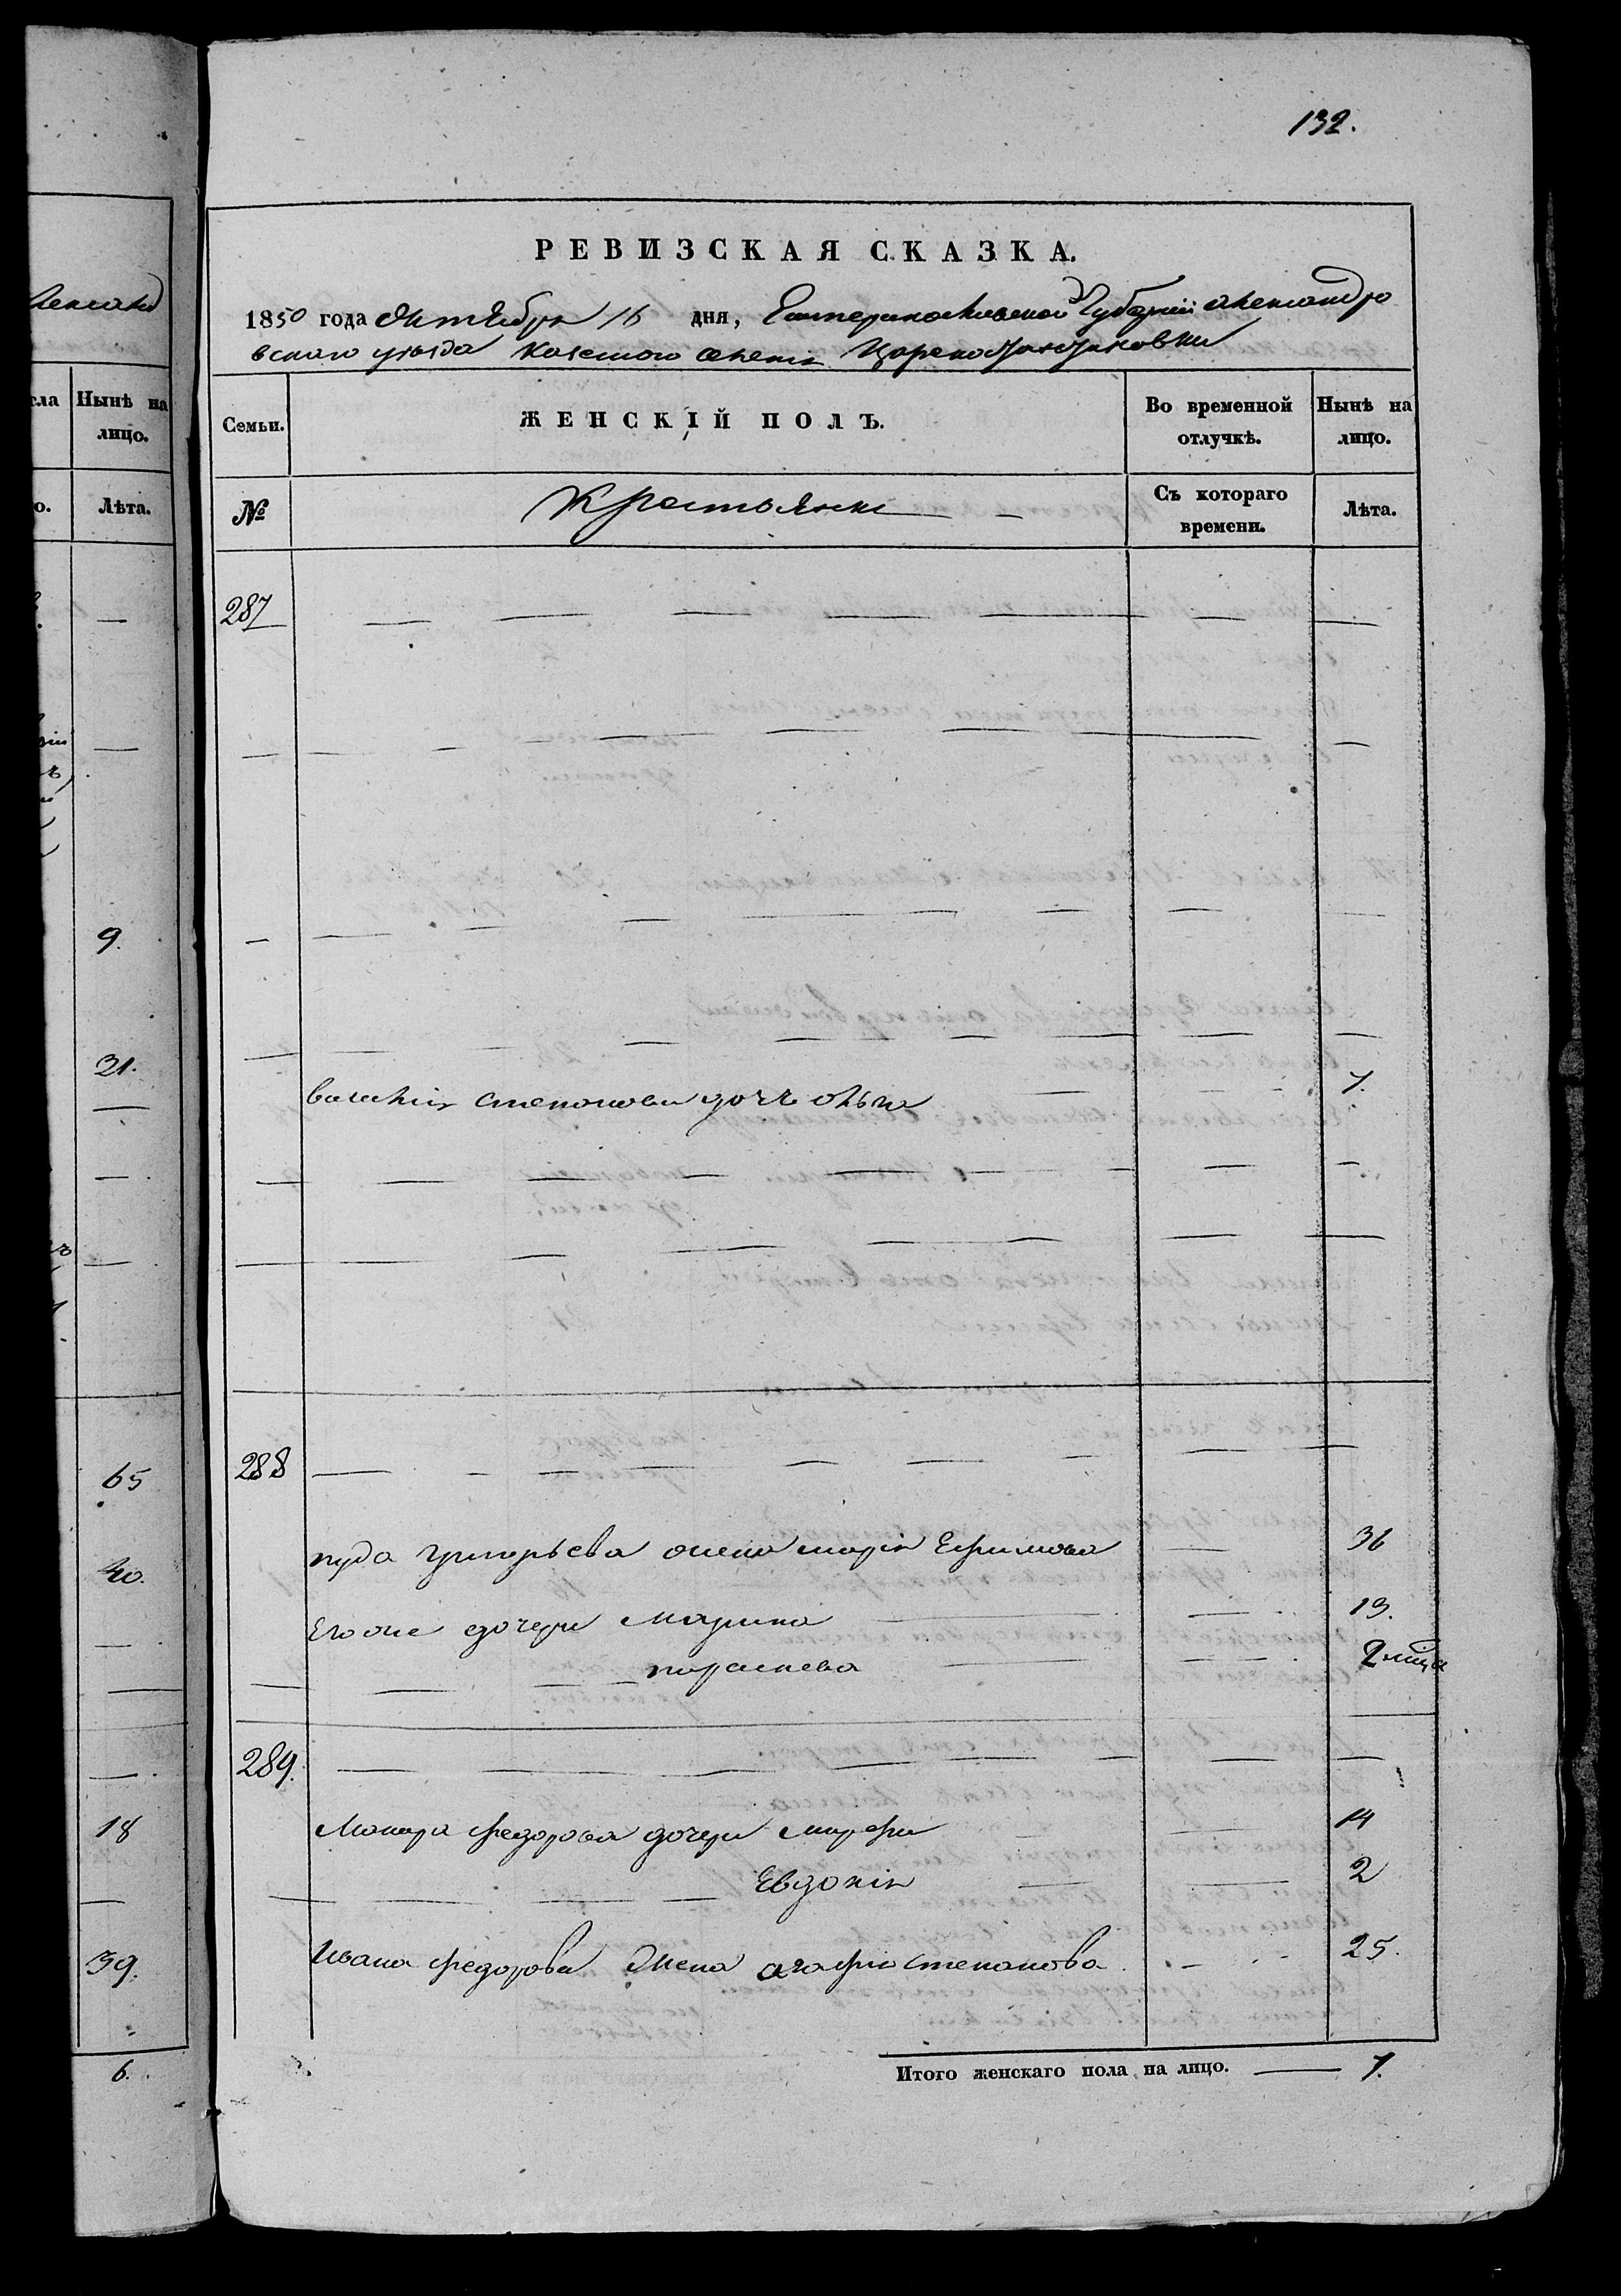 132.
РЕВИЗСКАЯ СКАЗКА.
1850 года Октября 16 дня, Екатеринославской Губернии Александро
вскаго уезда казенного селения Цареконстантиновки
Семьи. ЖЕНСКІЙ ПОЛЪ. Во временной отлучкѣ. Нынѣ на лицо.
№ Крестьянки — Съ котораго времени. Лѣта.
287
Василия Степанова дочь 7.
288
григорьева жена мария Ефимова 36
Его же дочери Марина 13.
параскева 2 мсца
289.
Макара федорова дочери марфа 14
Евдокия 2
Ивана федорова жена агафия степанова 25.
Итого женскаго пола на лицо. — 7.
ександ
сла Нынѣ на лицо.
о. Лѣта.
9.
31.
65
40.
18
39.
6.